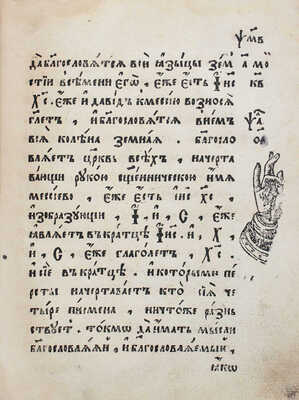 ѰМВ
да благословятся вси языцы зем
стіи в сѣмени егѡ̀, еже есть І҃ис
Х҃с. еже и давидъ к мессію возноси
глетъ, и благословятся в немъ
вся колѣна земная. благосло
вляетъ церквь всѣхъ, начерта
вающи рукою сщенническою имя
мессіево, еже есть іис хс,
изобразующи, І, и, С, еже
являетъ въкратцѣ І҃ис. и, Х,
и, С, еже глаголетъ, Х҃с.
и сіе въкратцѣ. и которыми пе
рсты начертаваетъ кто сія че
тыре писмена, ничтоже разнь
ствуетъ. токмѡ да имать мысли
благословляяй, и благословляемый,
ꙗкѡ